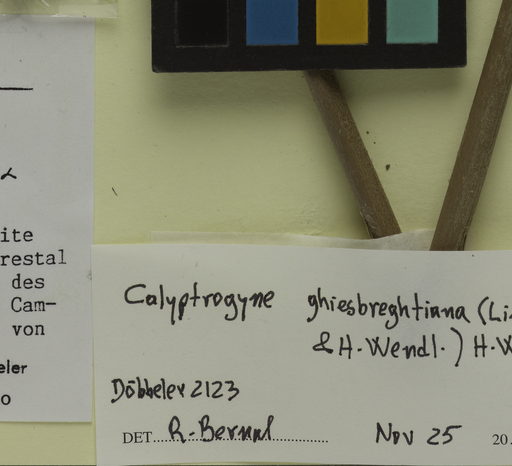 ite
restal
des
Cam-
von
eler
o
Calyptrogyne ghiesbreghtiana (Li
& H. Wendl.) H. W
Döbbeler 2123
DET. R. Bernal Nov 25 20.